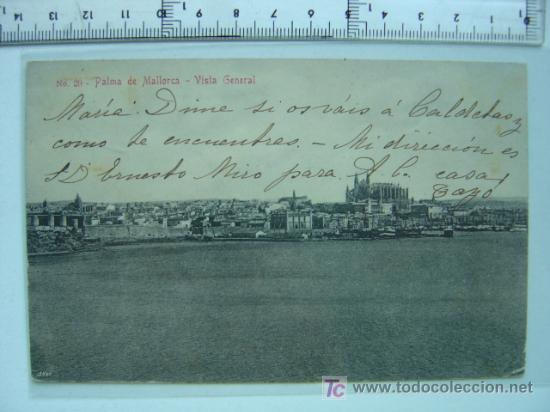 0 1 2 3 4 5 6 7 8 9 10 11 12 13 14
No. 20 - Palma de Mallorca - Vista General
María: Dime si os váis á Caldetas y
como te encuentras. - Mi dirección es
D. Ernesto Miro para A. C. casa
TC www.todocoleccion.net